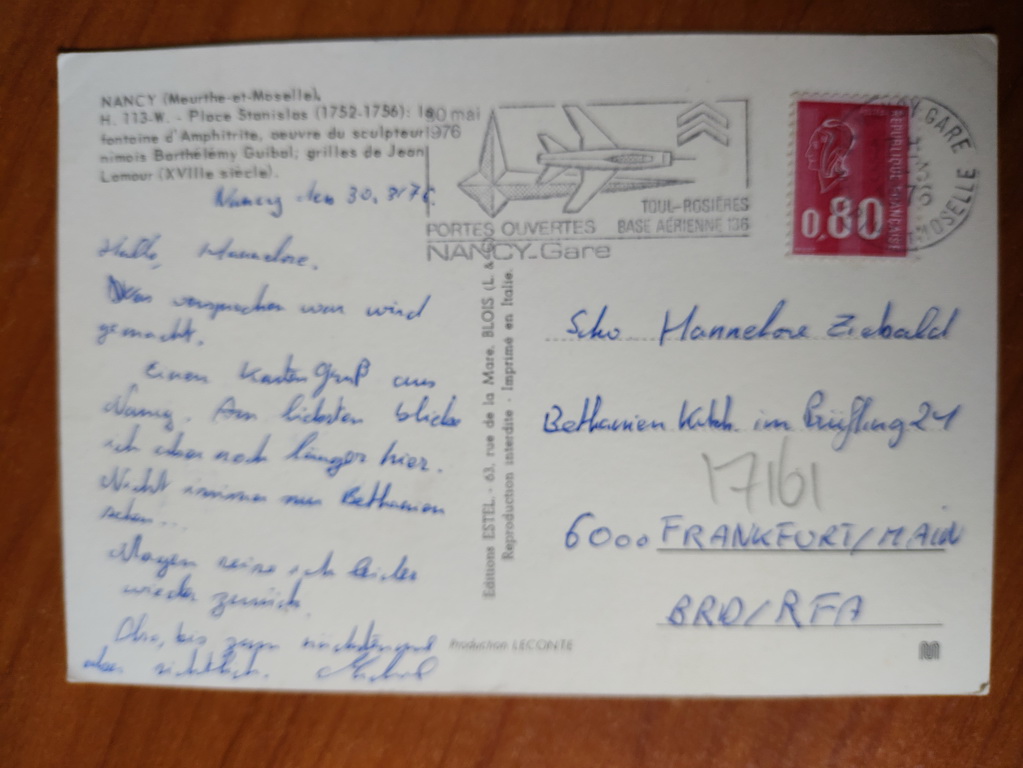 NANCY (Meurthe-et-Moselle),
H. 113-W. - Place Stanislas (1752-1756): la
fontaine d'Amphitrite, oeuvre du sculpteur
nimois Barthélémy Guibal; grilles de Jean
Lamour (XVIIIe siècle).
30 mai
1976
TOUL-ROSIÈRES
PORTES OUVERTES BASE AÉRIENNE 136
NANCY-Gare
REPUBLIQUE FRANÇAISE
0,80
GARE
MOSELLE
Nancy den 30.3.76
Hallo, Hannelore.
versprochen war wird
gemacht.
Einen Kartengruß aus
Nancy. Am liebsten bliebe
ich aber noch länger hier.
Nicht immer nur Bethanien
sehen...
Morgen reise ich leider
wieder zurück.
Also, bis zum nächsten mal
Michael
Editions ESTEL - 63, rue de la Mare, BLOIS (L. &
Reproduction interdite - Imprimé en Italie.
Production LECONTE
Hannelore Ziebald
Bethanien Krkh. im Prüfling 21
17161
6000 FRANKFURT/MAIN
BRD/RFA
M